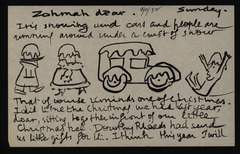 Zohmah dear. Sunday.
It is snowing and cars and people are
running around under a crust of snow
That of course reminds one of Christmas.
I did like the Christmas we had last year,
dear, sitting together in front of our little
Christmas tree. Dorothy Rhoads had send
us little gifts for it. I think this year I will